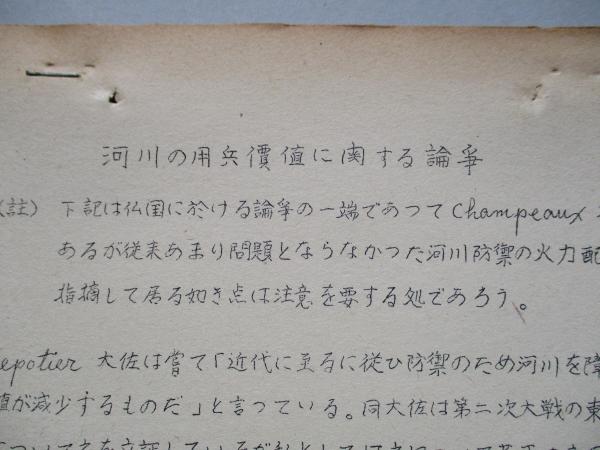 河川の用兵價値に関する論爭
(註) 下記は仏国に於ける論爭の一端であつて Champeaux
あるが従来あまり問題とならなかつた河川防禦の火力配
指摘して居る如き点は注意を要する処であろう。
epotier 大佐は嘗て「近代に至るに従ひ防禦のため河川を障
値が減少するものだ」と言つている。同大佐は第二次大戦の東